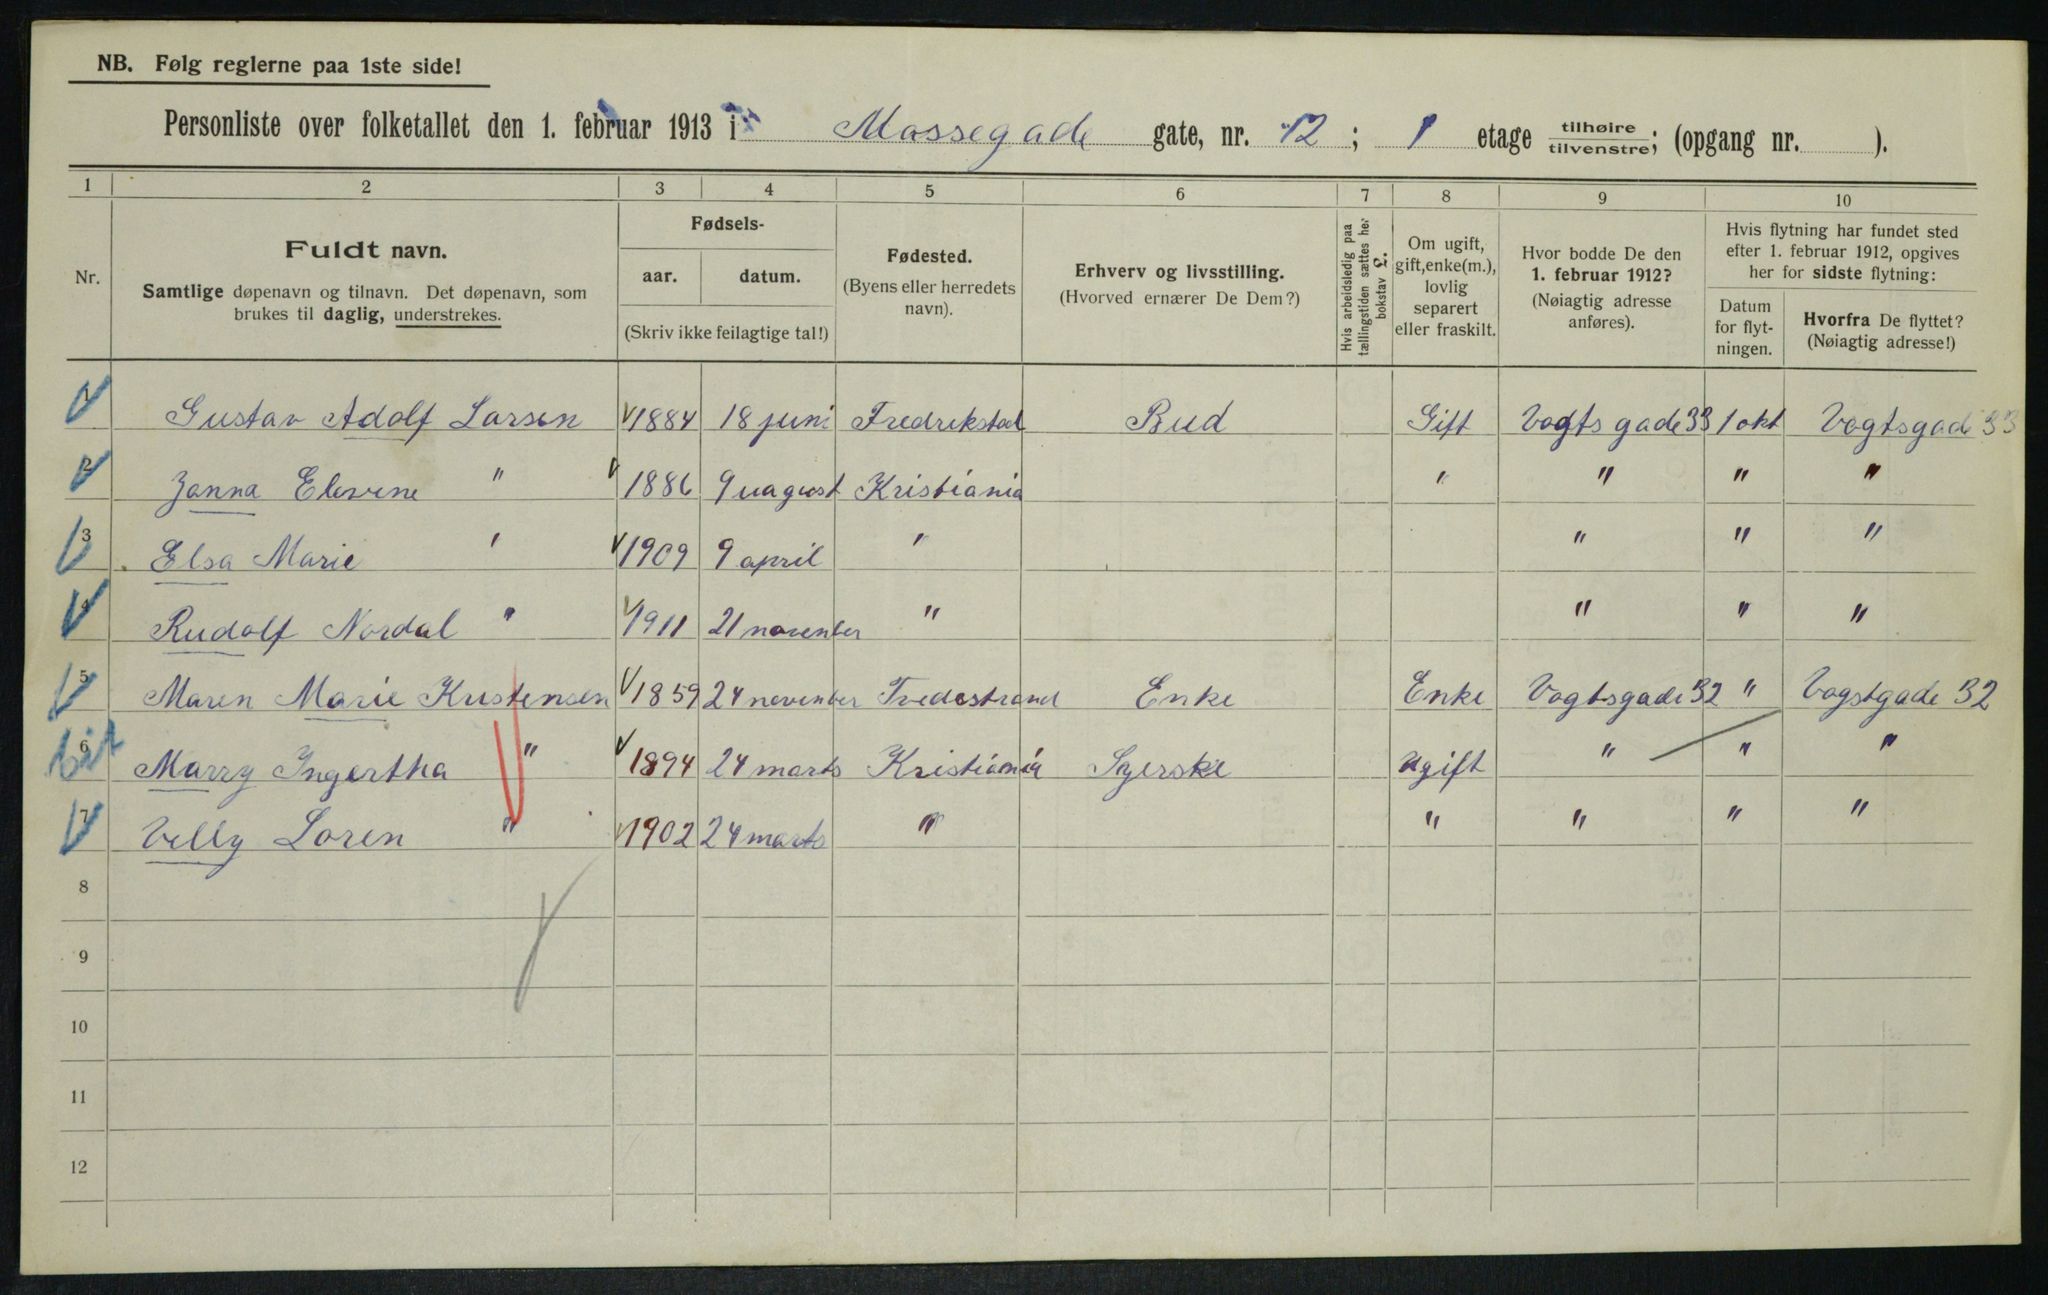 NB. Følg reglerne paa 1ste side!
Personliste over folketallet den 1. februar 1913 i Mossegade gate, nr. 12; 1 etage tilhøire tilvenstre; (opgang nr. ).
1 2 3 4 5 6 7 8 9 10
Nr.
Fuldt navn.
Samtlige døpenavn og tilnavn. Det døpenavn, som
brukes til daglig, understrekes.
Fødsels-
aar. datum.
(Skriv ikke feilagtige tal!)
Fødested.
(Byens eller herredets
navn).
Erhverv og livsstilling.
(Hvorved ernærer De Dem?)
Hvis arbeidsledig paa
tællingstiden sættes her
bokstav L.
Om ugift,
gift, enke(m.),
lovlig
separert
eller fraskilt.
Hvor bodde De den
1. februar 1912?
(Nøiagtig adresse
anføres).
Hvis flytning har fundet sted
efter 1. februar 1912, opgives
her for sidste flytning:
Datum
for flyt-
ningen.
Hvorfra De flyttet?
(Nøiagtig adresse!)
1 Gustav Adolf Larsen 1884 18 juni Fredrikstad Bud Gift Vogts gade 33 1 okt Vogtsgade 33
2 Janna Elevine " 1886 9 uagust Kristiania " " " "
3 Elsa Marie " 1909 9 april " " " "
4 Rudolf Nordal " 1911 21 november " " " "
5 Maren Marie Kristensen 1859 24 november Tvedestrand Enke Enke Vogtsgade 32 " Vogstgade 32
6 Marry Ingertha " 1894 24 marts Kristiania Syerske ugift " " "
7 Villy Loren " 1902 24 marts " " " " "
8
9
10
11
12